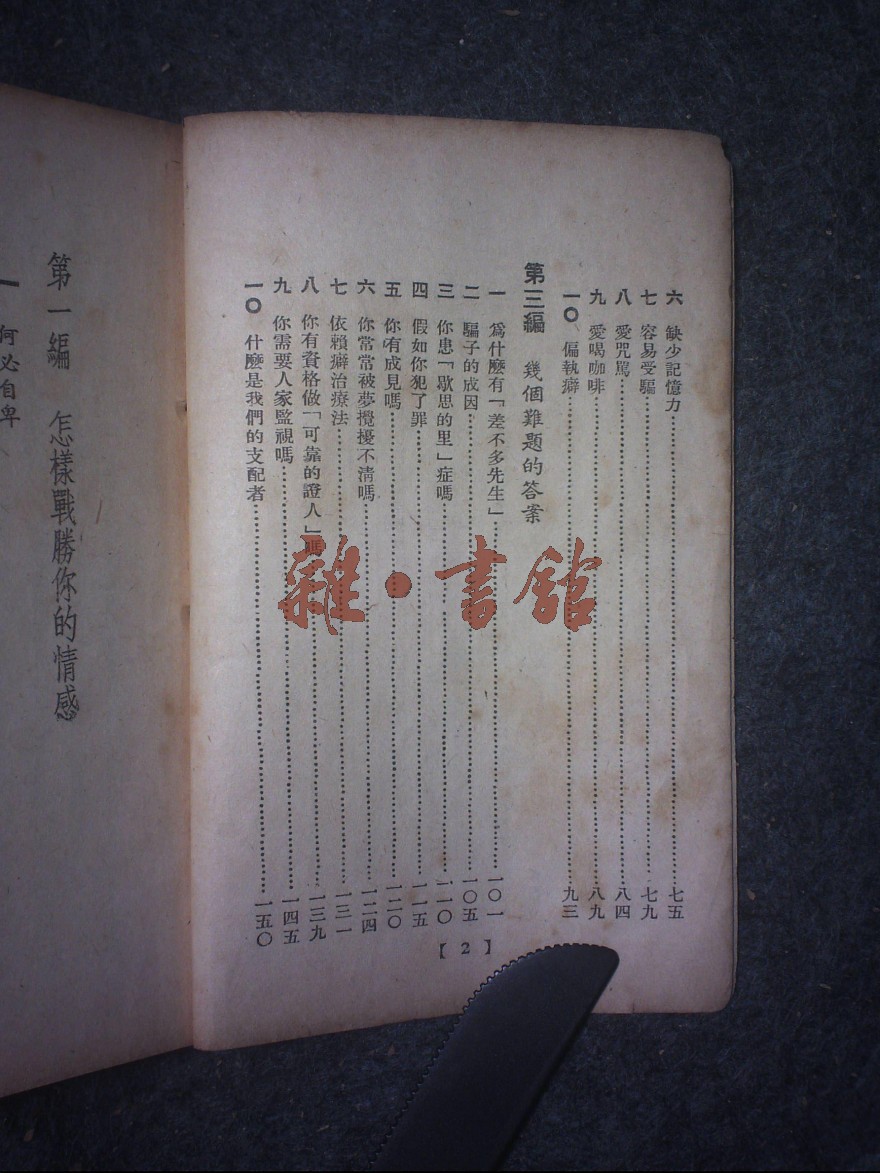 六 缺少記憶力⋯⋯七五
七 容易受騙⋯⋯七九
八 愛咒罵⋯⋯八四
九 愛喝咖啡⋯⋯八九
一〇 偏執癖⋯⋯九三
第三編 幾個難題的答案
一 爲什麼有「差不多先生」⋯⋯一〇一
二 騙子的成因⋯⋯一〇五
三 你患「歇思的里」症嗎⋯⋯一一〇
四 假如你犯了罪⋯⋯一一五
五 你有成見嗎⋯⋯一二〇
六 你常常被夢攪擾不清嗎⋯⋯一二四
七 依賴癖治療法⋯⋯一三一
八 你有資格做「可靠的證人」嗎⋯⋯一三九
九 你需要人家監視嗎⋯⋯一四五
一〇 什麼是我們的支配者⋯⋯一五〇
【2】
第一編 怎樣戰勝你的情感
一 何必自卑
雜·書館